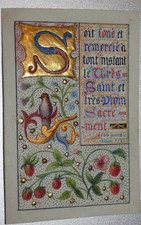 Soit loué et
remercié à
tout instant
le Très
Saint et
très Divin
Sacre
ment